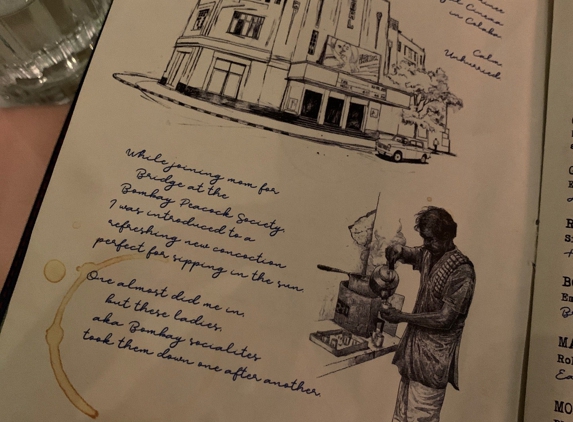 in Colaba
Unhurried
While joining mom for
Bridge at the
Bombay Peacock Society.
I was introduced to a
refreshing new concoction
perfect for sipping in the sun.
One almost did me in,
but these ladies,
aka Bombay socialites
took them down one after another.